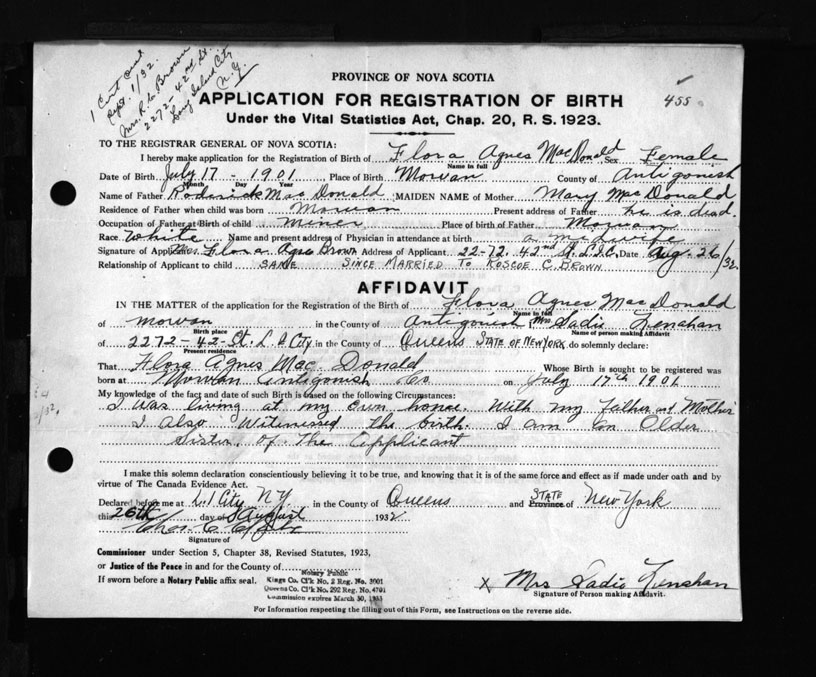 1 Cert sent
Sept. 1/32.
Mrs. R. C. Brown
2272 - 42nd St.
Long Island City
N.Y.
455
PROVINCE OF NOVA SCOTIA
APPLICATION FOR REGISTRATION OF BIRTH
Under the Vital Statistics Act, Chap. 20, R. S. 1923.
TO THE REGISTRAR GENERAL OF NOVA SCOTIA:
I hereby make application for the Registration of Birth of Flora Agnes MacDonald Sex Female
Name in full
Date of Birth July 17 - 1901 Place of Birth Morvan County of Antigonish
Month Day Year
Name of Father Roderick MacDonald, MAIDEN NAME of Mother Mary MacDonald
Residence of Father when child was born Morvan Present address of Father he is dead.
Occupation of Father at Birth of child Miner Place of birth of Father Morvan
Race White Name and present address of Physician in attendance at birth a midwife
Signature of Applicant Mrs. Flora Agnes Brown Address of Applicant 22-72. 42nd St. L.I.C. Date Aug. 26/32
Relationship of Applicant to child SAME SINCE MARRIED TO ROSCOE C. BROWN
AFFIDAVIT
IN THE MATTER of the application for the Registration of the Birth of Flora Agnes MacDonald
Name in full
of Morvan in the County of Antigonish Mrs. Sadie Lenahan
Birth place Name of person making Affidavit
of 2272 - 42 - St. L. I. City in the County of Queens STATE OF NEW YORK do solemnly declare:
Present residence
That Flora Agnes Mac Donald Whose Birth is sought to be registered was
born at Morvan Antigonish Co on July 17th 1901
My knowledge of the fact and date of such Birth is based on the following Circumstances:
I was living at my own home. With my Father and Mother
I also Witnessed the birth. I am an Older
Sister of The Applicant
I make this solemn declaration conscientiously believing it to be true, and knowing that it is of the same force and effect as if made under oath and by
virtue of The Canada Evidence Act.
Declared before me at L. I City, N.Y in the County of Queens and Province of STATE New York
this 26th day of August 1932
Signature of
Commissioner under Section 5, Chapter 38, Revised Statutes, 1923,
or Justice of the Peace in and for the County of
Notary Public
If sworn before a Notary Public affix seal. Kings Co. Cl'k No. 2 Reg. No. 3001
Queens Co. Cl'k No. 292 Reg. No. 4701
Commission expires March 30, 1933
x Mrs Sadie Lenahan
Signature of Person making Affidavit.
For Information respecting the filling out of this Form, see Instructions on the reverse side.